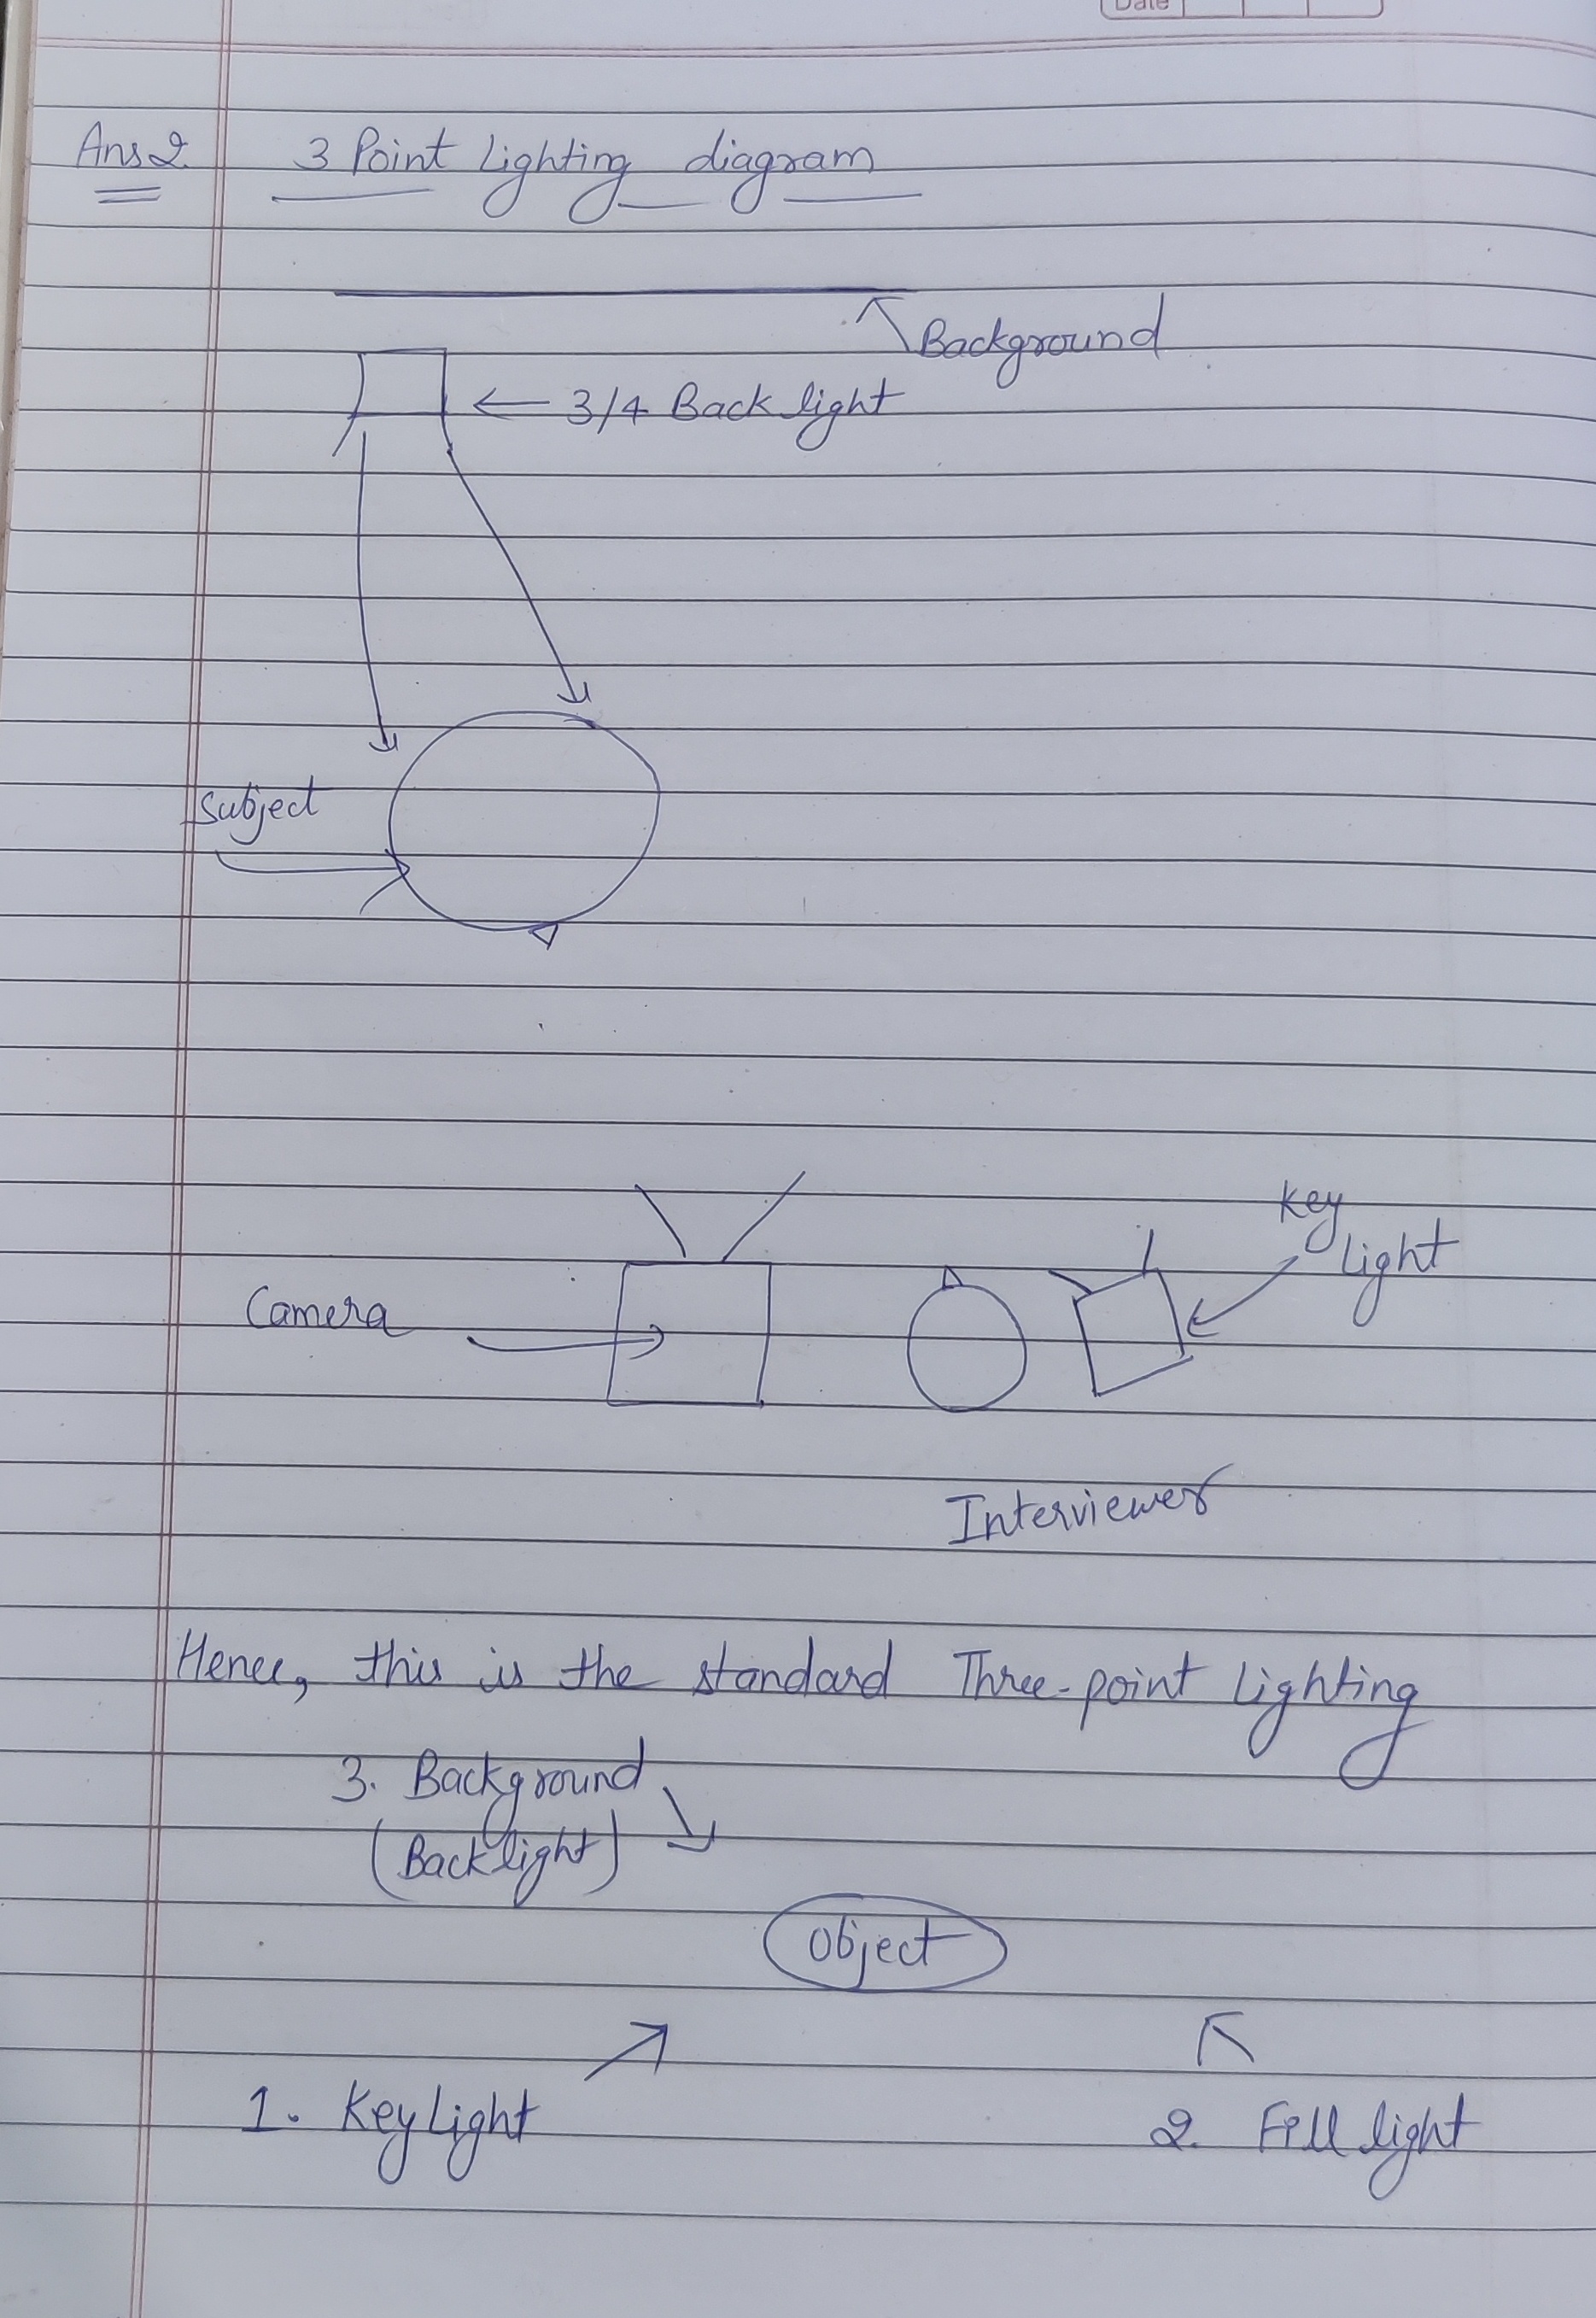 Date
Ans 2 3 Point Lighting diagram
Background
3/4 Back light
Subject
Key
Light
Camera
Interviewer
Hence, this is the standard Three-point Lighting
3. Background
(Backlight)
Object
1. Key Light
2. Fill light